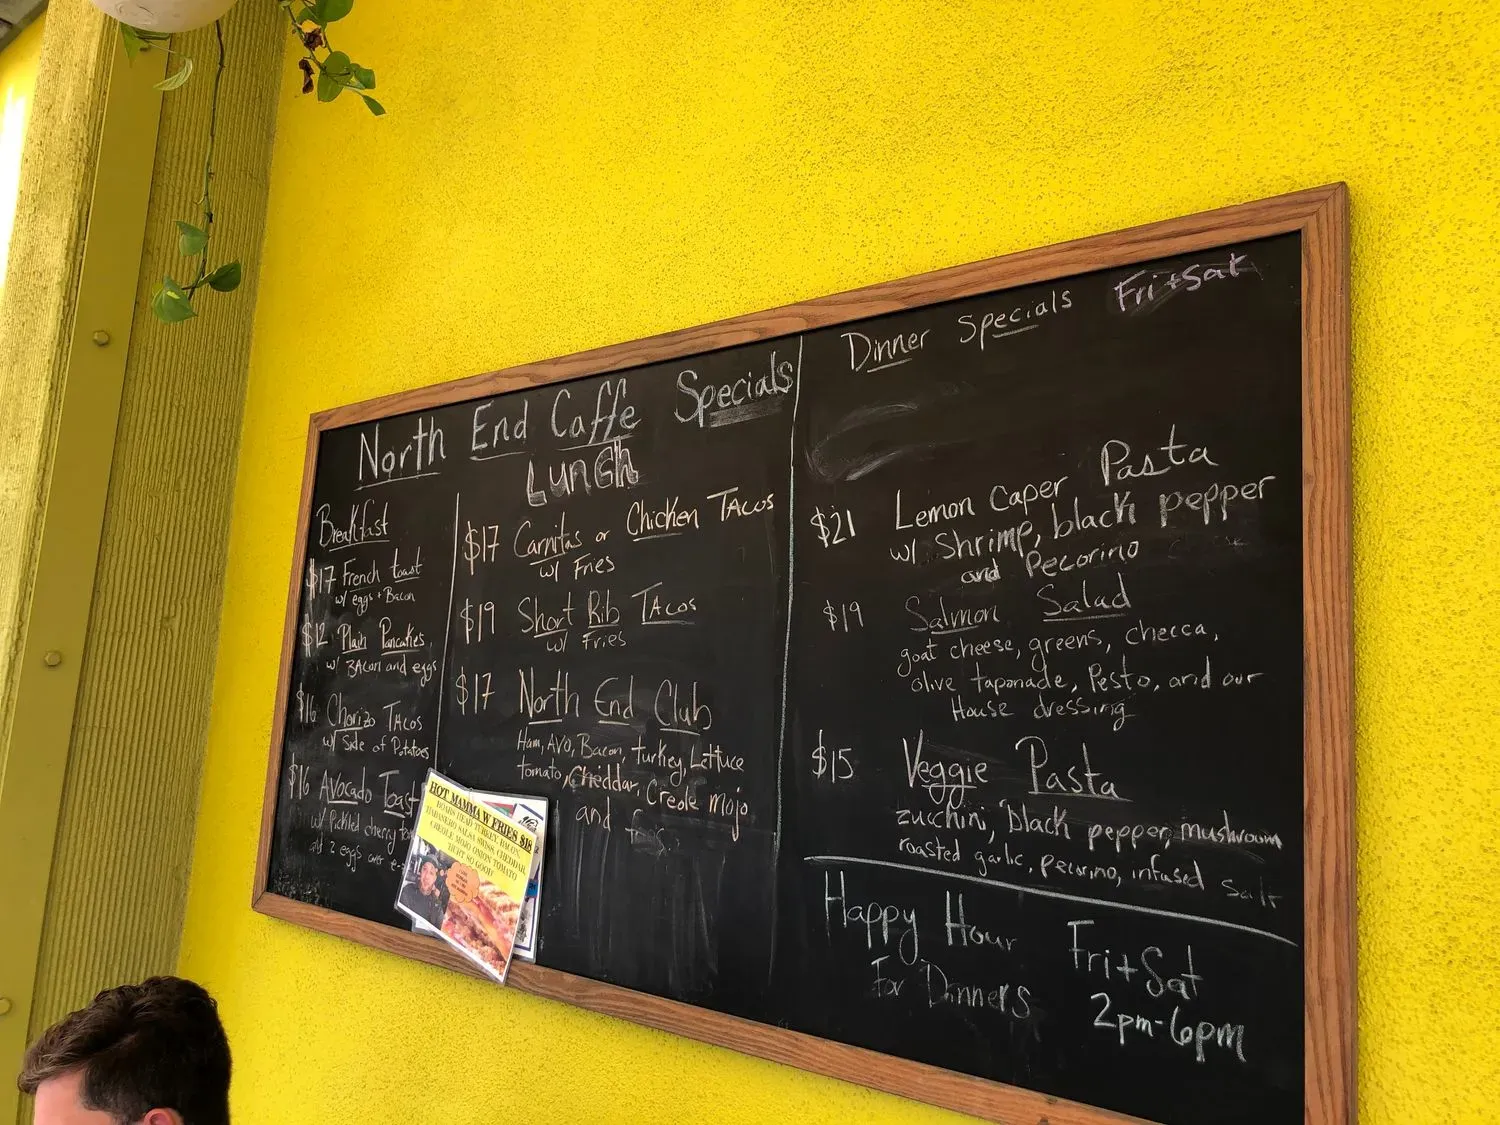 North End Caffe Specials
Breakfast
$17 French toast
w/ eggs + Bacon
$12 Plain Pancakes
w/ BAcon and eggs
$16 Chorizo TAcos
w/ Side of Potatoes
$16 Avocado Toast
w/ Pickled cherry
2 eggs
LUNCH
$17 Carnitas or Chicken TAcos
w/ Fries
$19 Short Rib TAcos
w/ Fries
$17 North End Club
Ham, AVO, Bacon, turkey, Lettuce
tomato, Cheddar, Creole mojo
and
HOT MAMMA W FRIES $18
BOARS HEAD TURKEY, BACON,
HABANERO SALSA, SWISS, CHEDDAR,
CREOLE MOJO ONION TOMATO
SO GOOD!!
Dinner Specials Fri + Sat
$21 Lemon Caper Pasta
w/ Shrimp, black pepper
and Pecorino
$19 Salmon Salad
goat cheese, greens, checca,
olive taponade, Pesto, and our
House dressing
$15 Veggie Pasta
zucchini, black pepper, mushroom
roasted garlic, pecorino, infused Salt
Happy Hour Fri + Sat
For Dinners 2pm-6pm